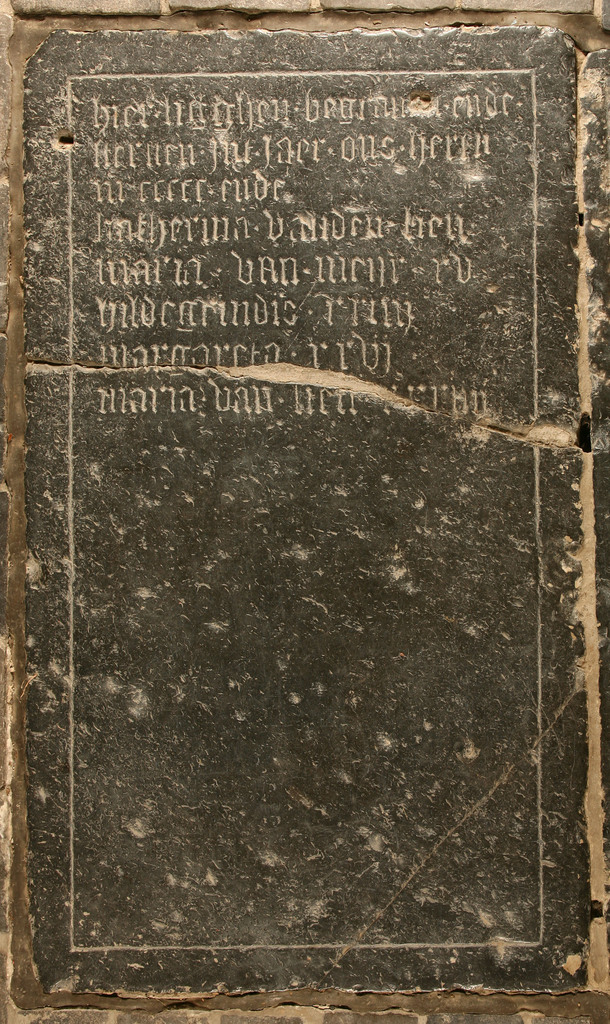 hier · ligghen · begraven · ende ·
sterven · int · jaer · ons · heren
m · cccc · ende
katherina · vanden ·
maria · van · meyr · xv
hildegundis · xxiiij
margareta · xxvj
maria · van ·